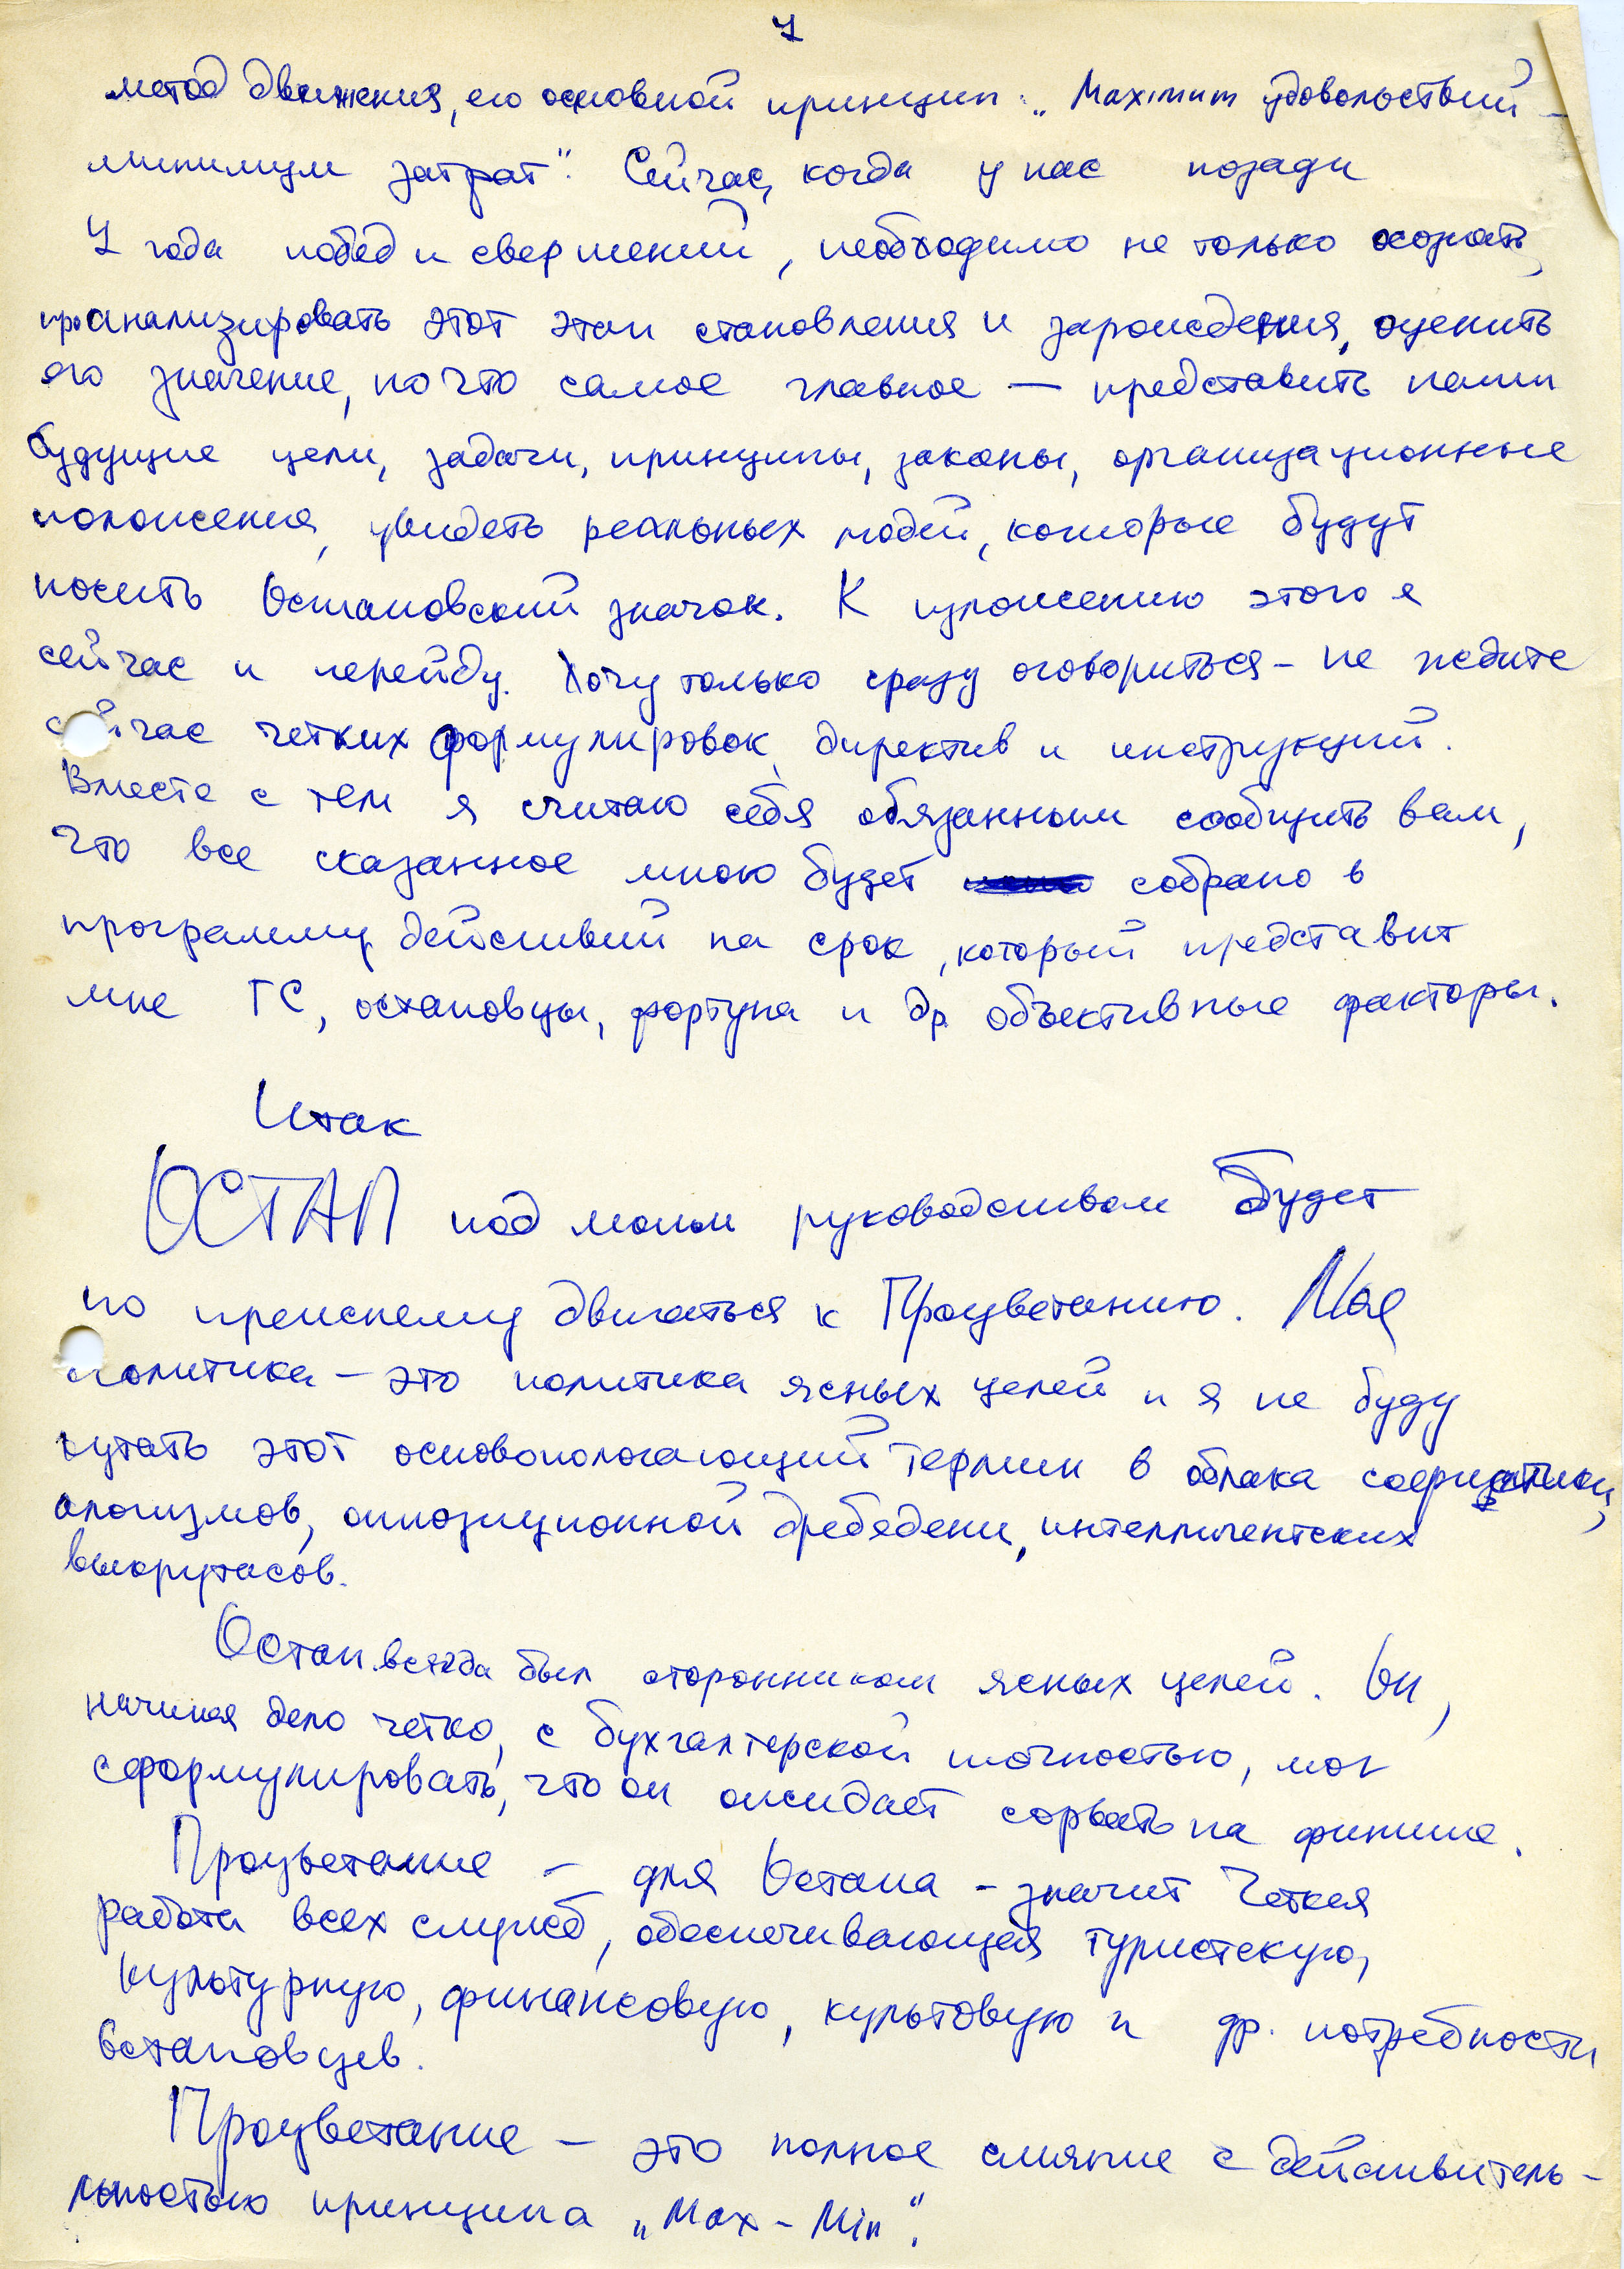 4
метод движения, его основной принцип: „Maximum удовольствий –
минимум затрат". Сейчас, когда у нас позади
4 года побед и свершений, необходимо не только
проанализировать этот этап становления и зарождения, оценить
его значение, но что самое главное — представить наши
будущие цели, задачи, принципы, законы, организационные
положения, увидеть реальных людей, которые будут
носить Остаповский значок. К изложению этого я
сейчас и перейду. Хочу только сразу оговориться – не ждите
сейчас четких формулировок, директив и инструкций.
Вместе с тем я считаю себя обязанным сообщить вам,
что все сказанное мною будет собрано в
программу действий на срок, который представит
мне ГС, остаповцы, фортуна и др. объективные факторы.
Итак
ОСТАП под моим руководством будет
по прежнему двигаться к Процветанию. Моя
политика – это политика ясных целей и я не буду
кутать этот основопологающий термин в облака
алогизмов, оппозиционной дребедени, интеллигентских
выкрутасов.
Остап всегда был сторонником ясных целей. Он,
начиная дело четко, с бухгалтерской точностью, мог
сформулировать, что он ожидает сорвать на финише.
Процветание – для Остапа – значит четкая
работа всех служб, обеспечивающая туристскую,
культурную, финансовую, культовую и др. потребности
Остаповцев.
Процветание – это полное слияние с действитель-
льностью принципа „Max – Min".